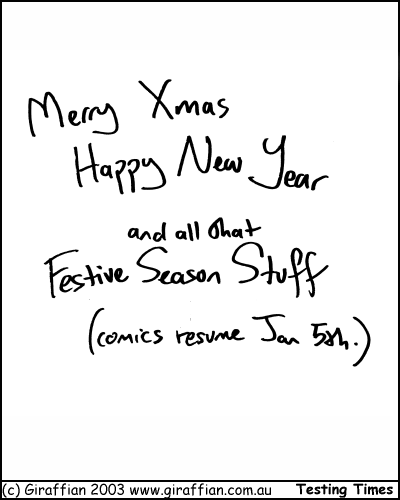 Merry Xmas
Happy New Year
and all that
Festive Season Stuff
(comics resume Jan 5th.)
(c) Giraffian 2003 www.giraffian.com.au Testing Times